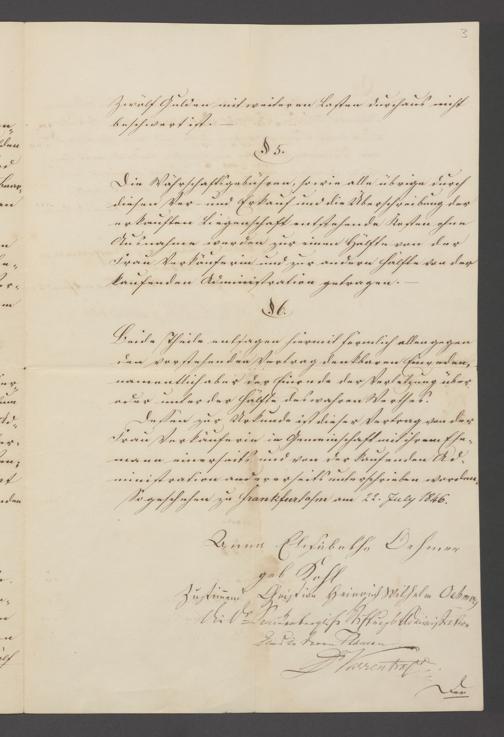 3
Zwölf Gulden mit weiteren Lasten durchaus nicht
beschwert ist. —
§ 5.
Die Währschaftsgebühren, sowie alle übrige durch
diesen Ver- und Erkauf und die Überschreibung der
erkauften Liegenschaft entstehende Kosten ohne
Ausnahme werden zur einen Hälfte von der
Frau Verkäuferin und zur andern Hälfte von der
kaufenden Administration getragen. —
§ 6.
Beide Theile entsagen hiermit förmlich allen gegen
den vorstehenden Vertrag denkbaren Einreden,
namentlich aber der Einrede der Verletzung über
oder unter der Hälfte des wahren Werthes.
Dessen zur Urkunde ist dieser Vertrag von der
Frau Verkäuferin in Gemeinschaft mit ihrem Ehe-
mann einerseits und von der kaufenden Ad-
ministration andererseits unterschrieben worden.
So geschehen zu Frankfurt a/m am 22. July 1846.
Anna Elisabetha Oehmer
geb Kohl
Christian Heinrich Wilhelm Oehmer
Die Dr Senckenbergische Stiftungs Administration
und in deren Namen